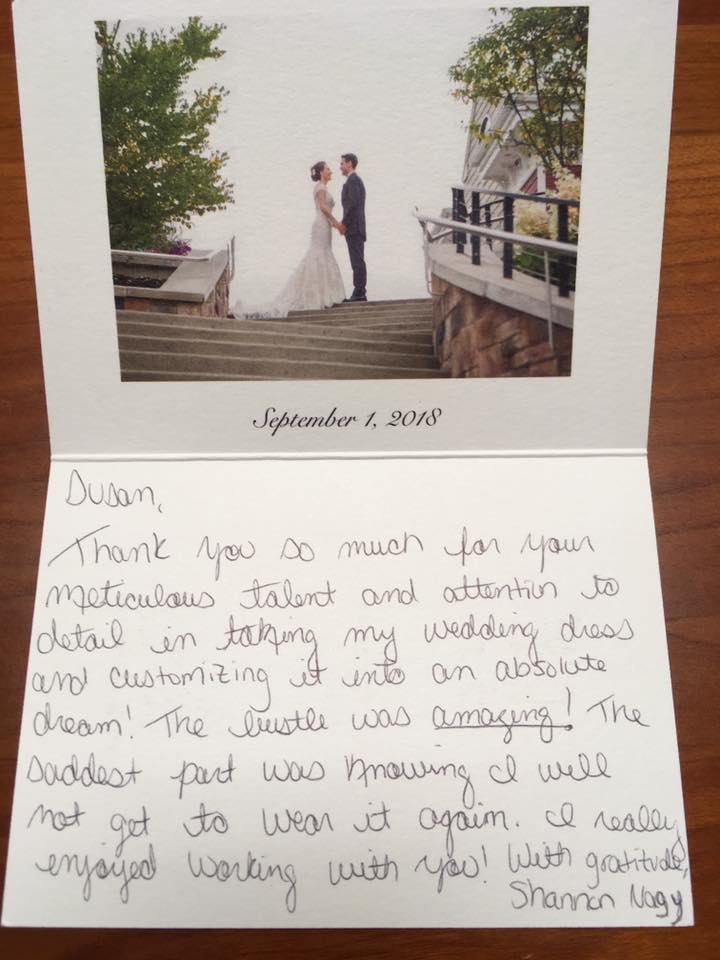 September 1, 2018
Susan,
Thank you so much for your
meticulous talent and attention to
detail in taking my wedding dress
and customizing it into an absolute
dream! The bustle was amazing! The
saddest part was knowing I will
not get to wear it again. I really
enjoyed working with you! With gratitude,
Shannon Nagy